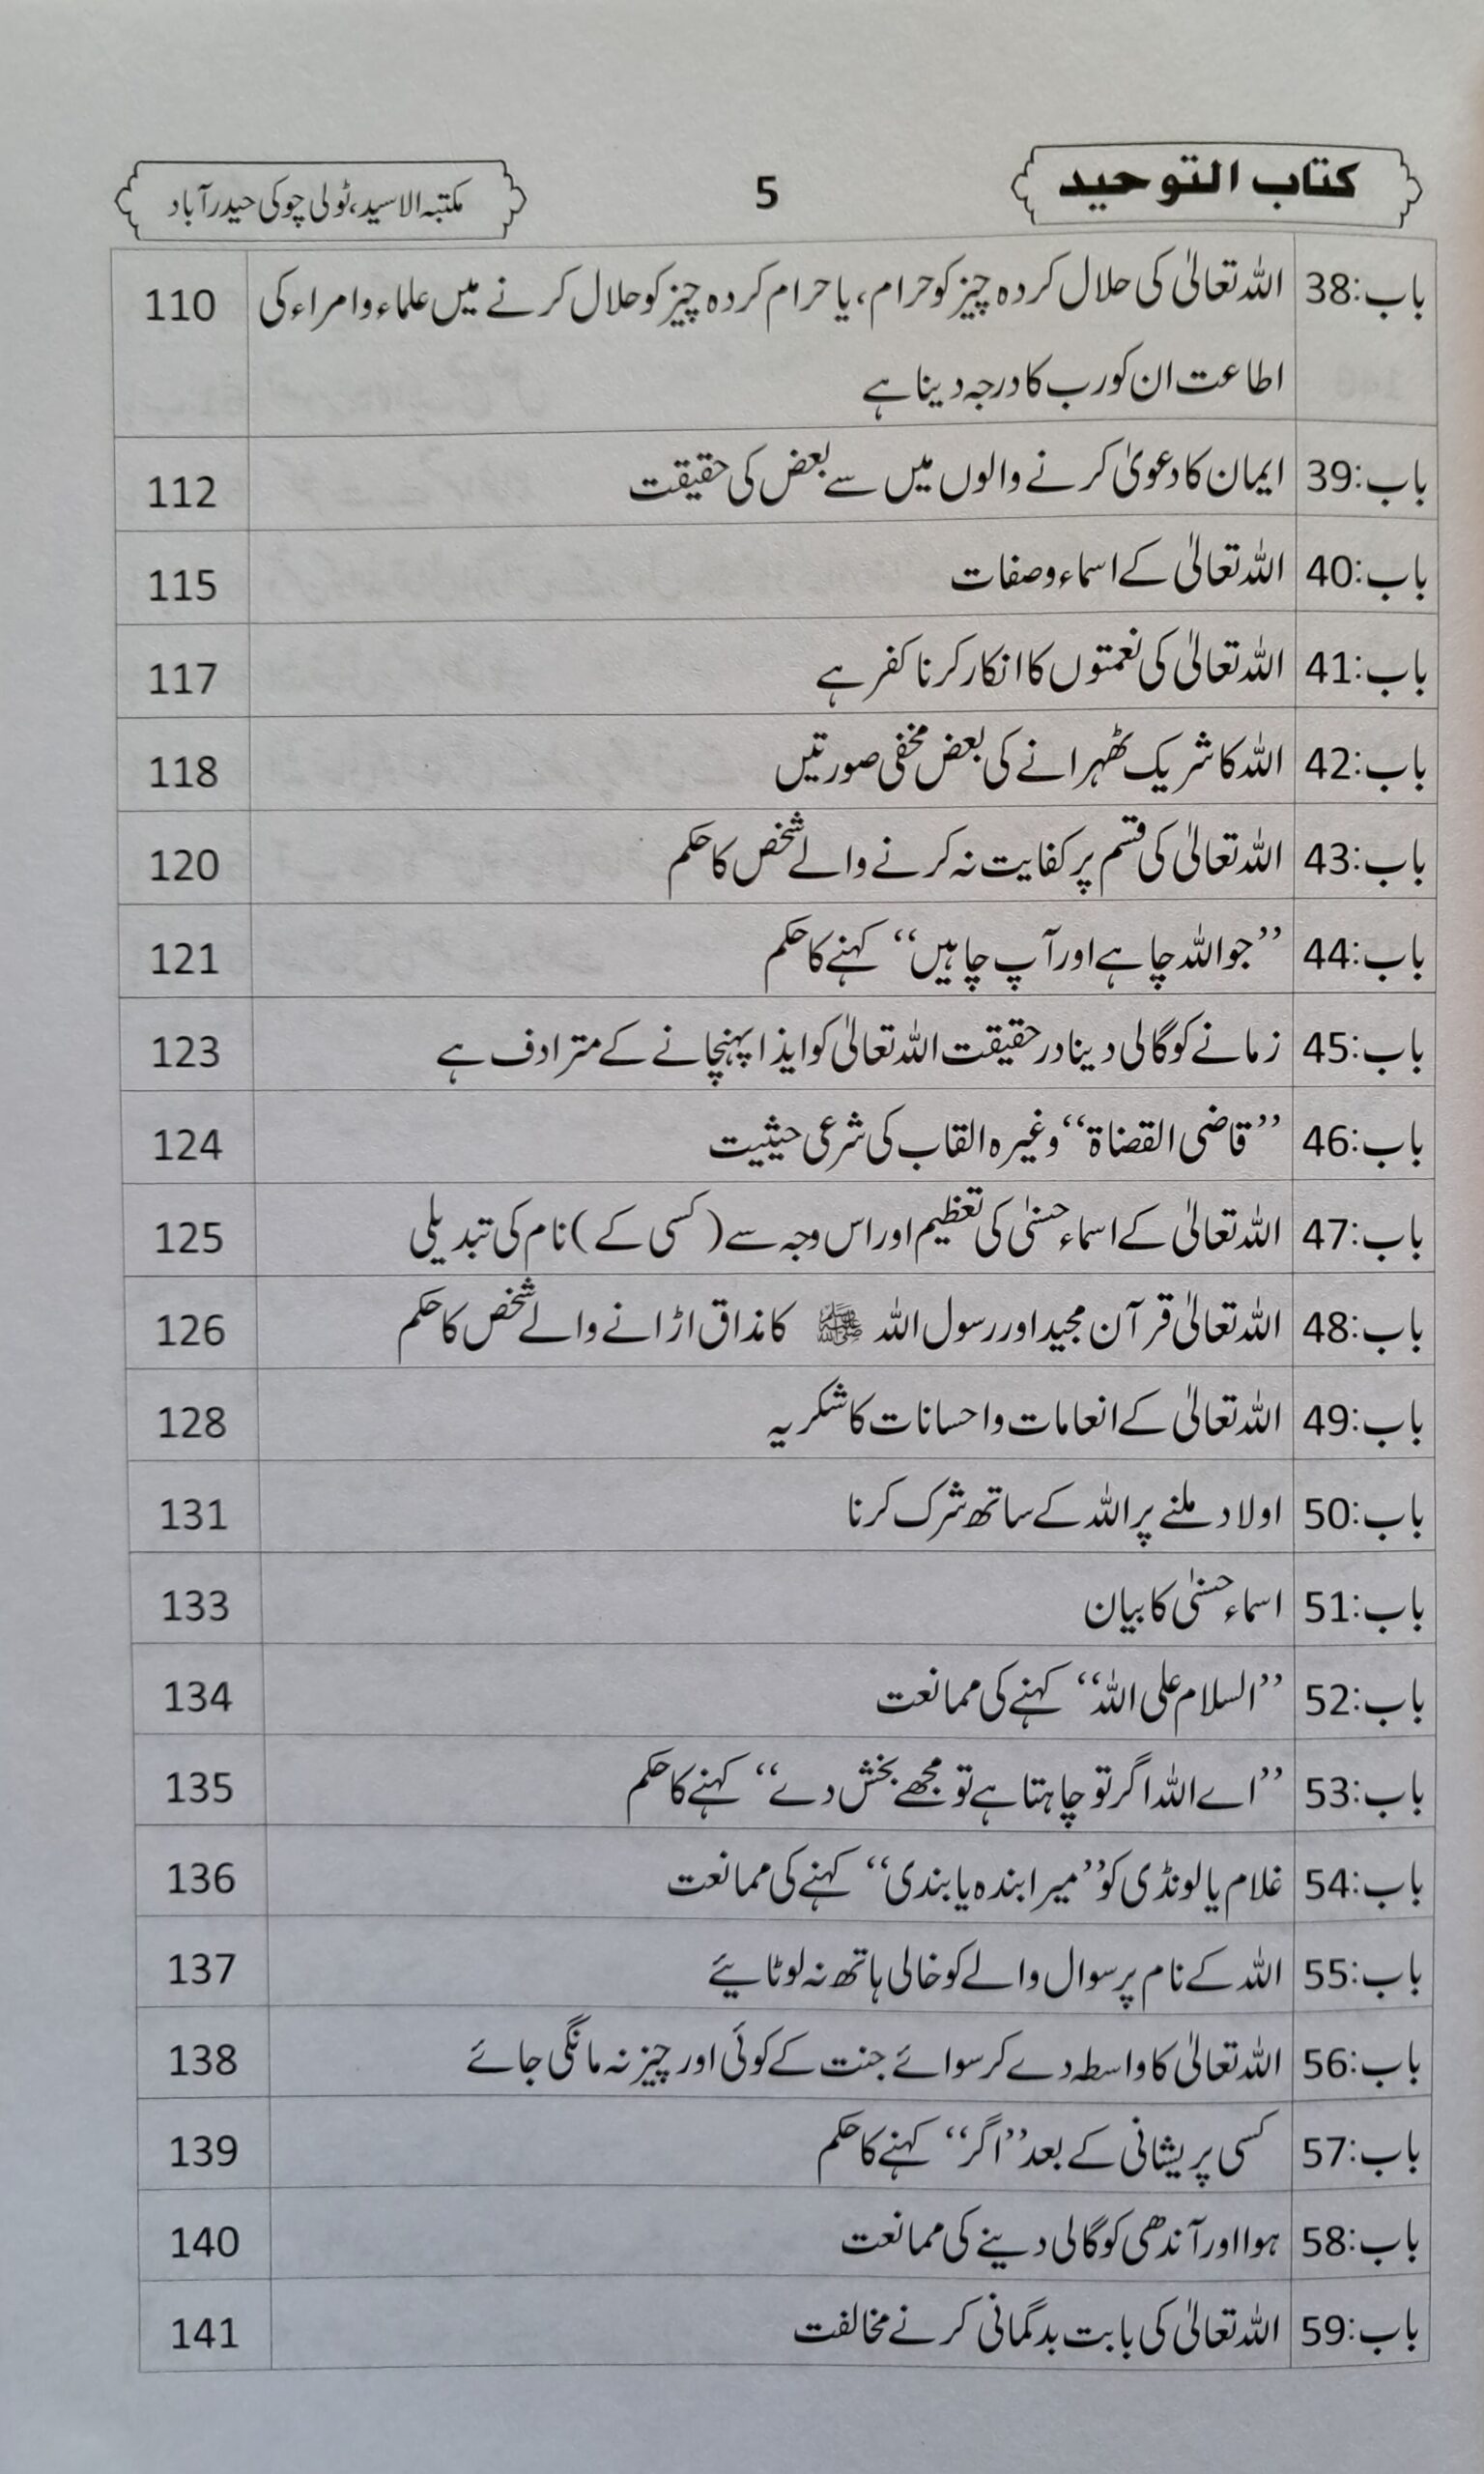 کتاب التوحید
5
مکتبہ الاسید، ٹولی چوکی حیدرآباد
باب:38 اللہ تعالیٰ کی حلال کردہ چیز کو حرام، یا حرام کردہ چیز کو حلال کرنے میں علماء و امراء کی 110
اطاعت ان کو رب کا درجہ دینا ہے
باب:39 ایمان کا دعویٰ کرنے والوں میں سے بعض کی حقیقت 112
باب:40 اللہ تعالیٰ کے اسماء و صفات 115
باب:41 اللہ تعالیٰ کی نعمتوں کا انکار کرنا کفر ہے 117
باب:42 اللہ کا شریک ٹھہرانے کی بعض مخفی صورتیں 118
باب:43 اللہ تعالیٰ کی قسم پر کفایت نہ کرنے والے شخص کا حکم 120
باب:44 ’’جو اللہ چاہے اور آپ چاہیں‘‘ کہنے کا حکم 121
باب:45 زمانے کو گالی دینا در حقیقت اللہ تعالیٰ کو ایذا پہنچانے کے مترادف ہے 123
باب:46 ’’قاضی القضاۃ‘‘ وغیرہ القاب کی شرعی حیثیت 124
باب:47 اللہ تعالیٰ کے اسماء حسنیٰ کی تعظیم اور اس وجہ سے (کسی کے) نام کی تبدیلی 125
باب:48 اللہ تعالیٰ قرآن مجید اور رسول اللہ ﷺ کا مذاق اڑانے والے شخص کا حکم 126
باب:49 اللہ تعالیٰ کے انعامات و احسانات کا شکریہ 128
باب:50 اولاد ملنے پر اللہ کے ساتھ شرک کرنا 131
باب:51 اسماء حسنیٰ کا بیان 133
باب:52 ’’السلام علی اللہ‘‘ کہنے کی ممانعت 134
باب:53 ’’اے اللہ اگر تو چاہتا ہے تو مجھے بخش دے‘‘ کہنے کا حکم 135
باب:54 غلام یا لونڈی کو ’’میرا بندہ یا بندی‘‘ کہنے کی ممانعت 136
باب:55 اللہ کے نام پر سوال والے کو خالی ہاتھ نہ لوٹایئے 137
باب:56 اللہ تعالیٰ کا واسطہ دے کر سوائے جنت کے کوئی اور چیز نہ مانگی جائے 138
باب:57 کسی پریشانی کے بعد ’’اگر‘‘ کہنے کا حکم 139
باب:58 ہوا اور آندھی کو گالی دینے کی ممانعت 140
باب:59 اللہ تعالیٰ کی بابت بدگمانی کرنے مخالفت 141